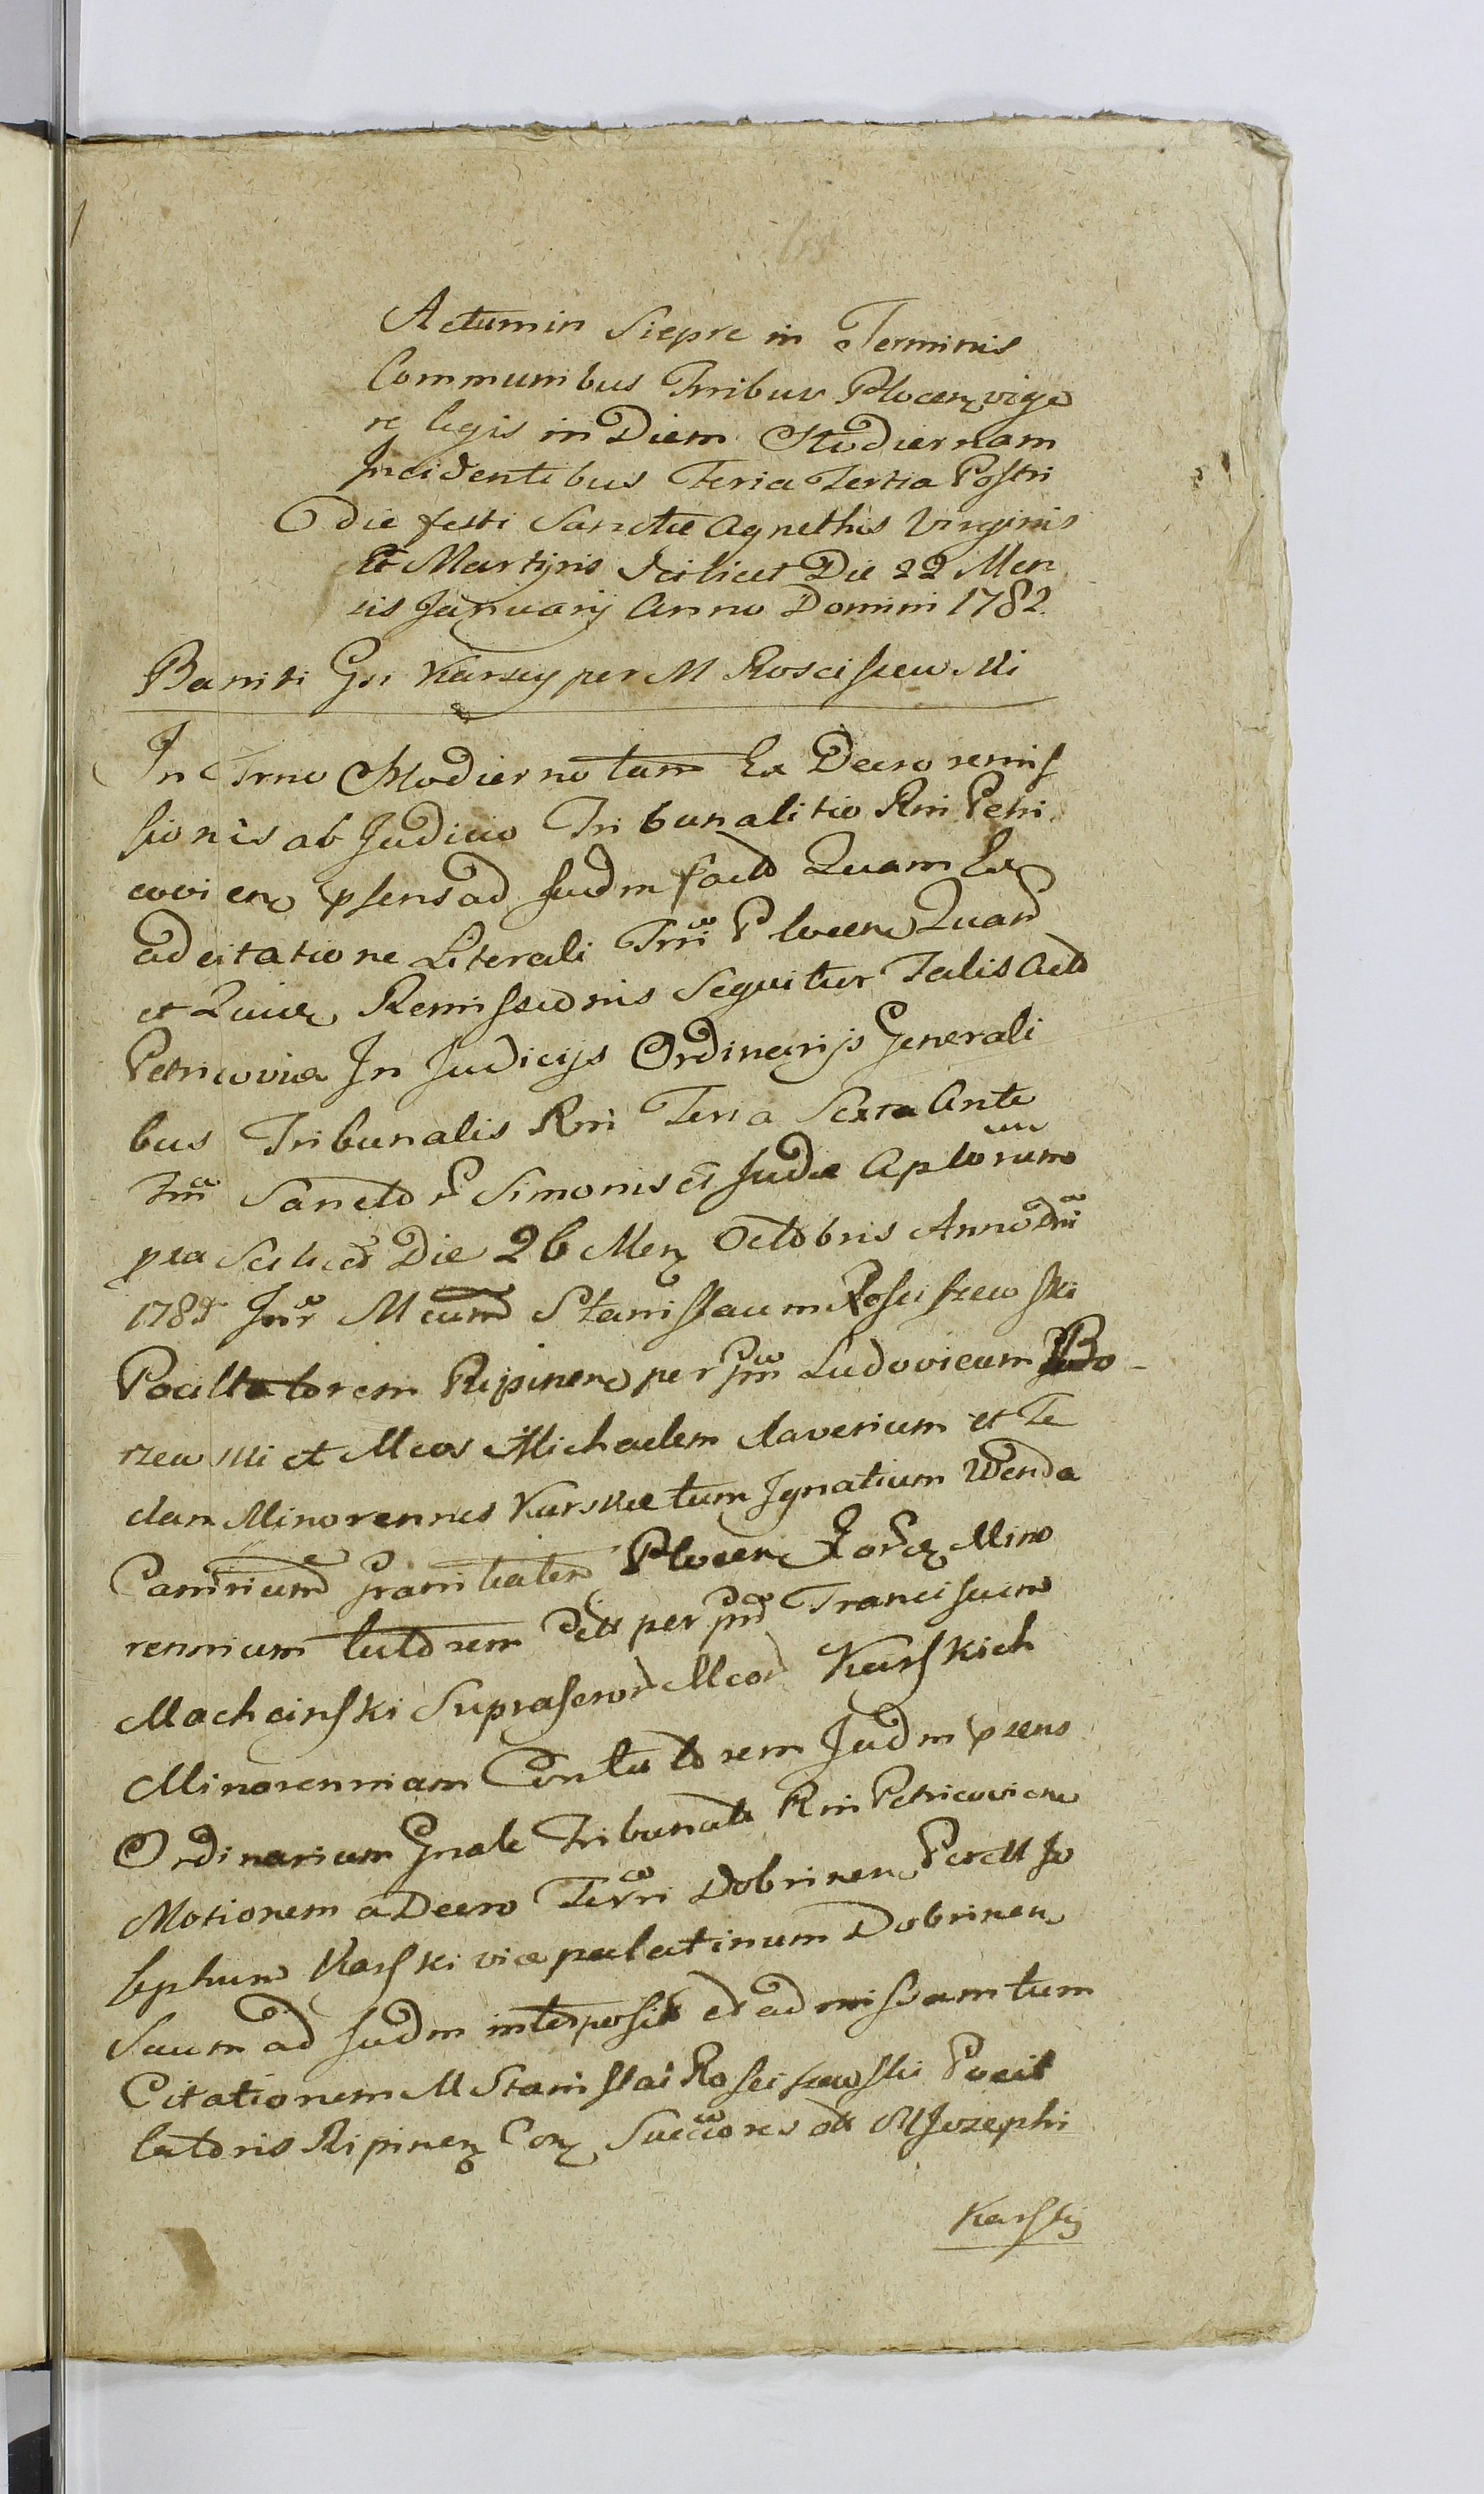 Actum in Sieprc in Terminis
Communibus Trribus Plocen vigo
re legis in Diem Hodiernam
Incidentibus Feria Tertia Postri
die festi Sanctæ Agnethis Virginis
Et Martyris scilicet Die 22 Men
sis Januarij Anno Domini 1782.
Baniti Gsi Karscy per M Rosciszewski
In Trno Hodierno tam Ex Decro remis
sionis ab Judicio Tribunalitio Rni Petri
covien psens ad Judm facto Quam Ex
adcitatione Literali Trri Plocen Quar
et Quive Remissionis Sequitur Talis Acto
Petricoviæ In Judicijs Ordinarijs Generali
bus Tribunalis Rni Feria Sexta Ante
Sanctor Simonis et Judæ Aplorum
pxa Scilicet Die 26 Men Octobris Anno Dni
178 Inr Mcum Stanislaum Rosciszewski
Pocillatorem Ripinen per Ludovicum Bo-
rzewski et Mcos Michaelem Xaverium et Te
clam Minorennes Karskie tum Ignatium Wenda
Camrium Granitialem Plocen Minо
rennium tutorem per Franciscum
Machcinski Suprascror Mcor Karskich
Minorenniam Contutorem Judm psens
Ordinarium Gnale Tribunale Rni Petricovien
Motionem a Decro Terri Dobrinen Per Jo
sephum Karski vice palatinum Dobrinen
Suum ad Judm interposit et admissam tum
Citationem M Stanislai Rosciszewski Pocil
latoris Ripinen Con Succcores M Jozephi
Karskij